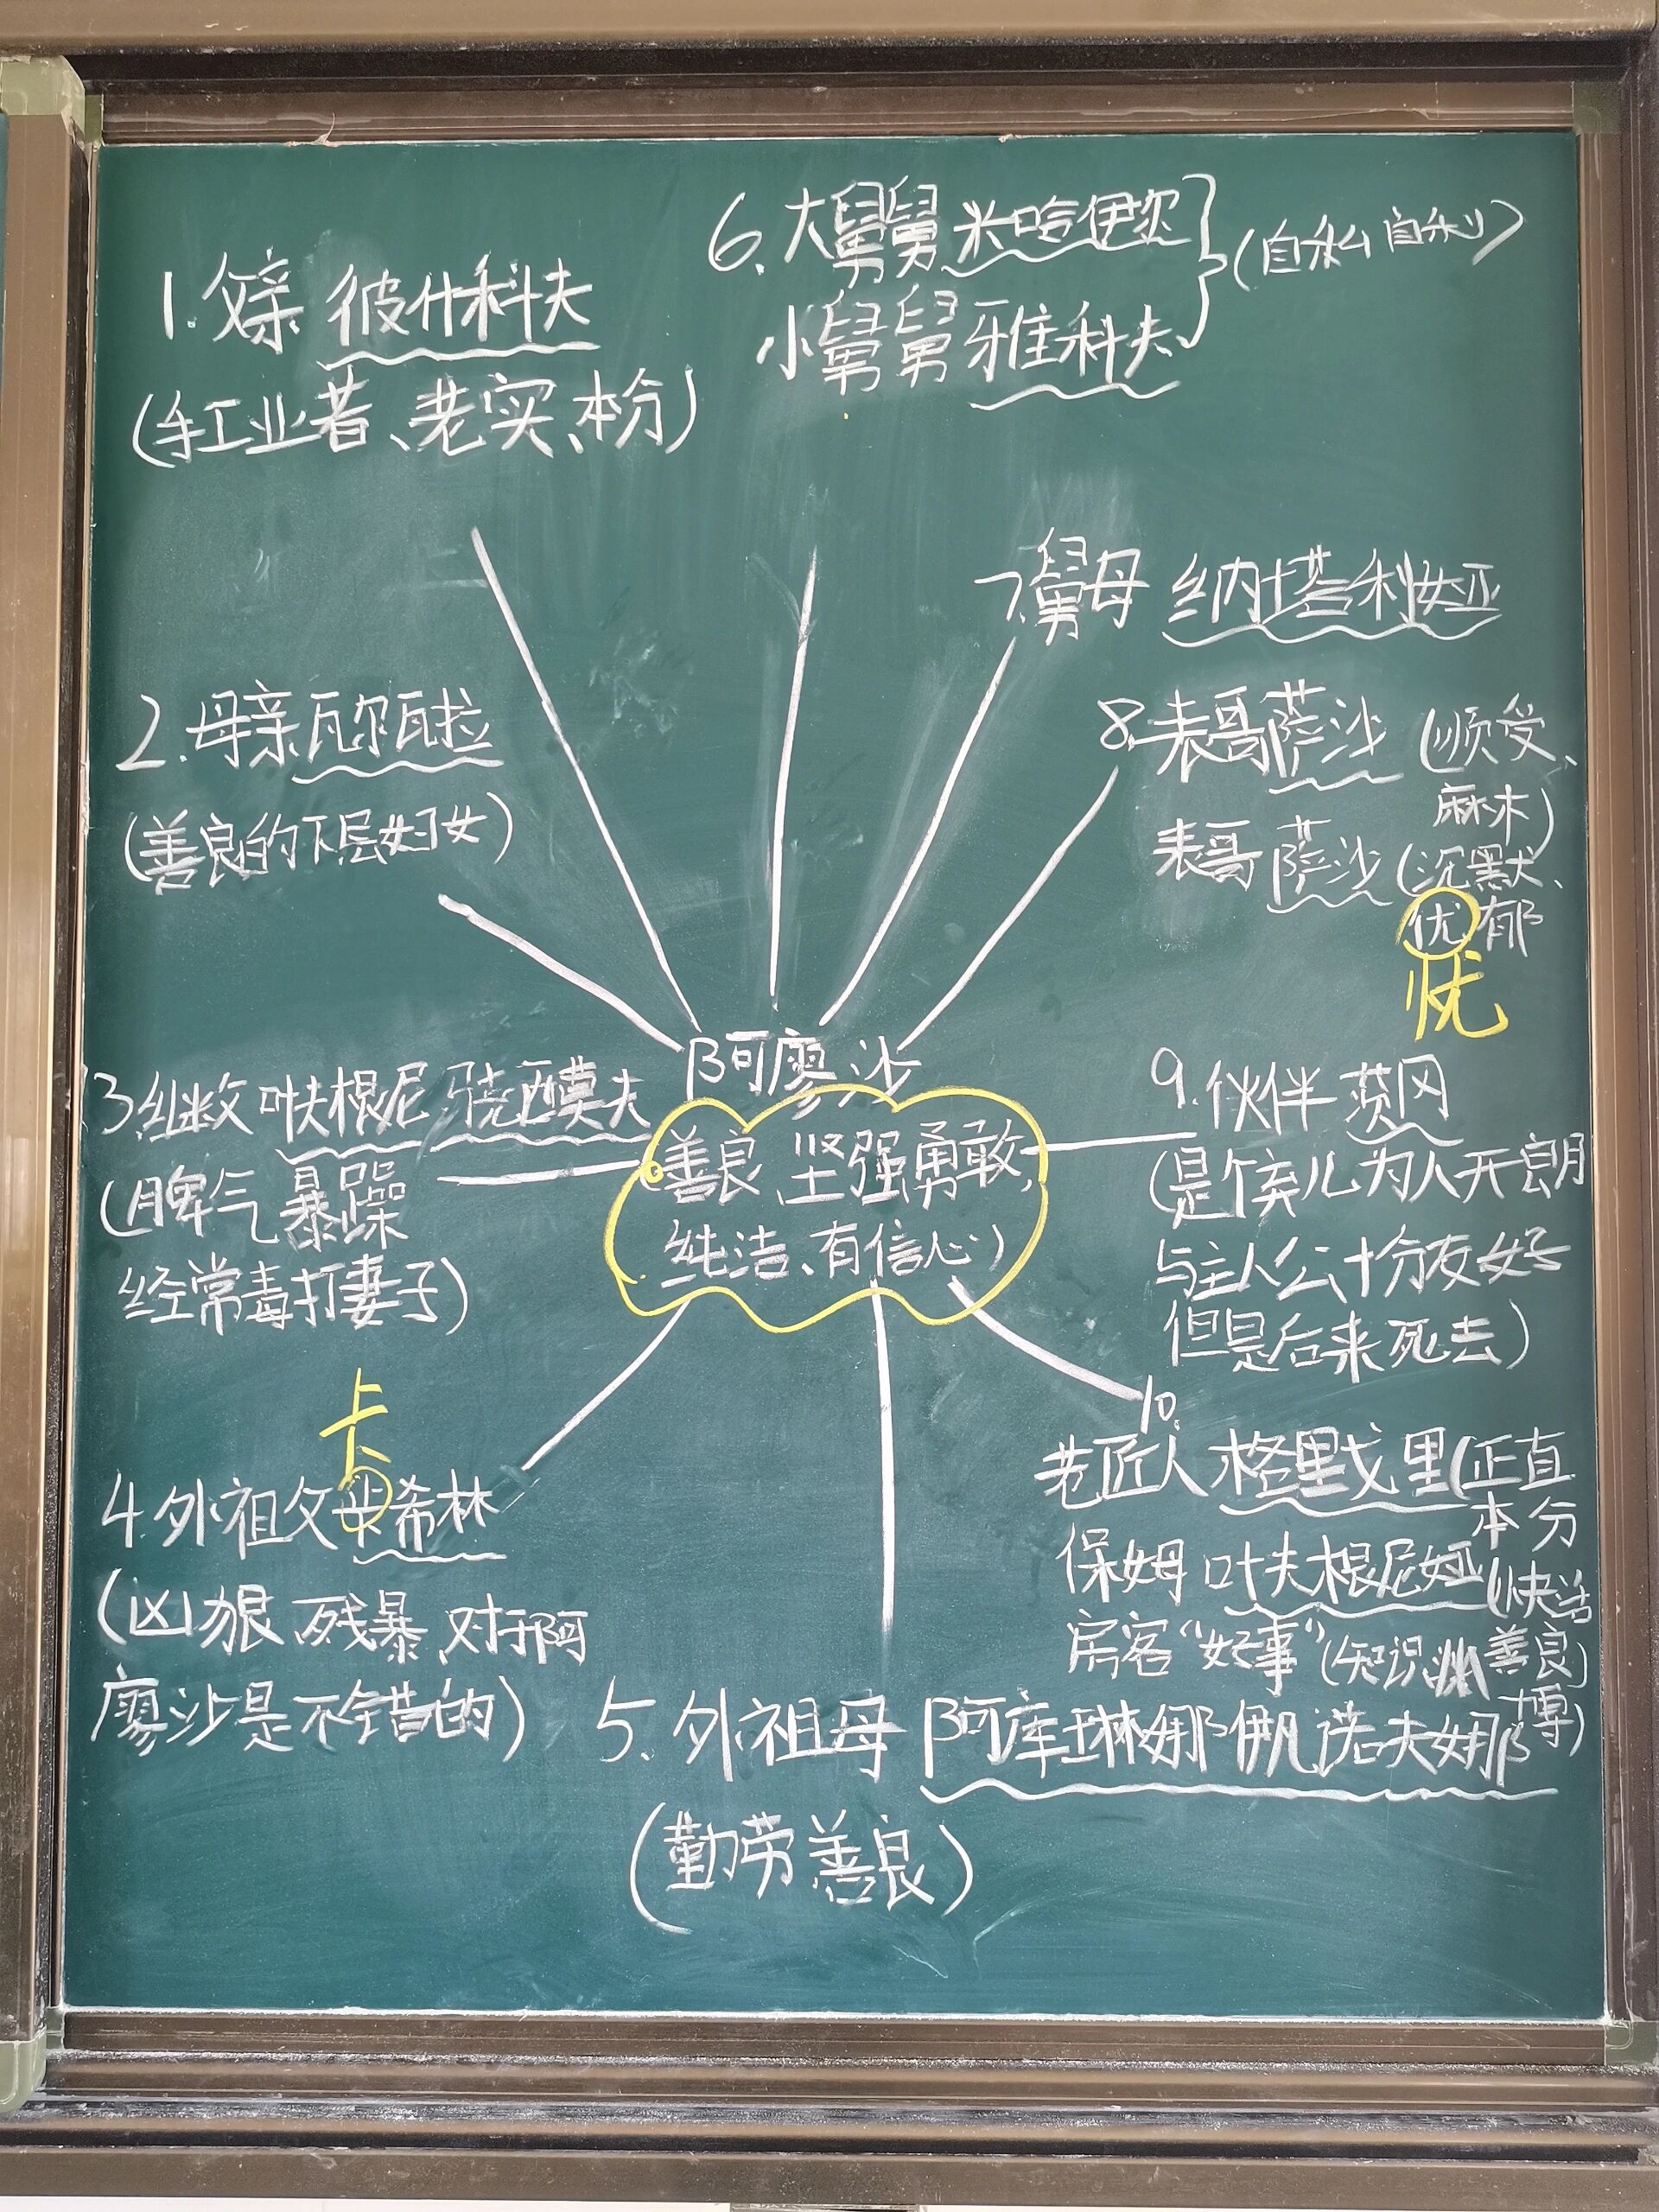 1.父亲 彼什科夫
(手工业者、老实、本分)
2.母亲瓦尔瓦拉
(善良的下层妇女)
3.继父 叶夫根尼.马克西莫夫
(脾气暴躁
经常毒打妻子)
卡
4.外祖父卡希林
(凶狠 残暴,对于阿
廖沙是不错的)
5.外祖母 阿库琳娜伊凡诺夫娜
(勤劳善良)
6.大舅舅 米哈伊尔
小舅舅 雅科夫
(自私自利)
7.舅母 纳塔利娅
8.表哥萨沙 (顺受、
麻木)
表哥 萨沙 (沉默、
优郁
忧
9.伙伴 茨冈
(是个弃儿 为人开朗
与主人公十分友好
但是后来死去)
10.
老匠人 格里戈里(正直
本分
保姆 叶夫根尼娅 (快活
善良)
房客“好事”(知识
博)
阿廖沙
(善良、坚强勇敢,
纯洁、有信心)